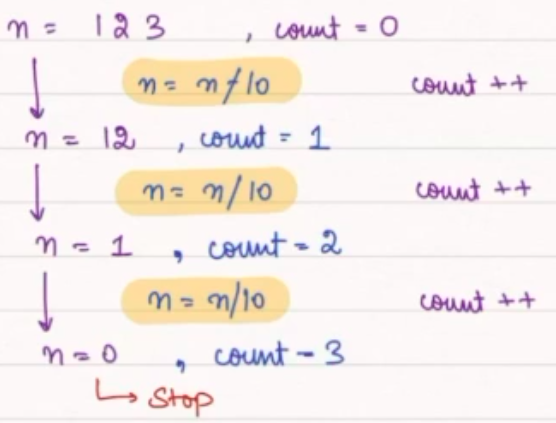 n = 123 , count = 0
n = n/10 count ++
n = 12 , count = 1
n = n/10 count ++
n = 1 , count = 2
n = n/10 count ++
n = 0 , count - 3
↳ Stop